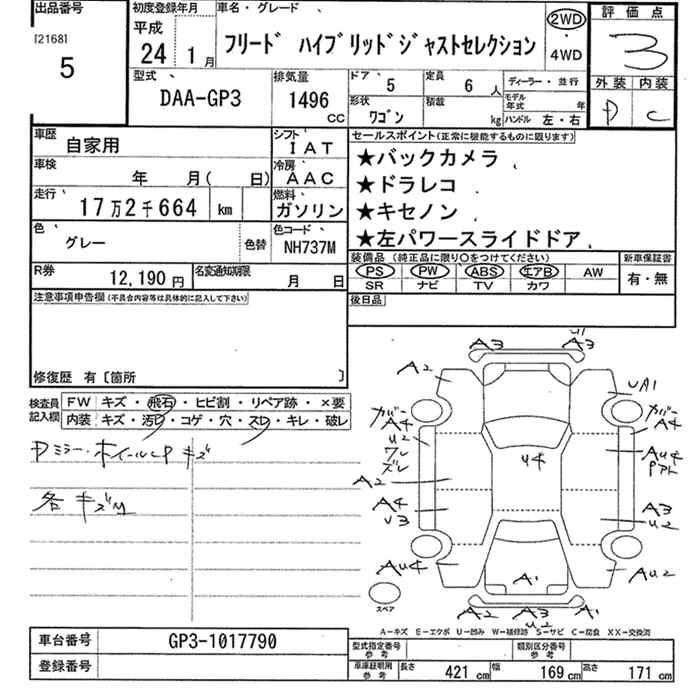 出品番号
[2168]
5
初度登録年月
平成
24 1月
車名・グレード
フリード ハイブリッドジャストセレクション
2WD
・
4WD
評価点
3
外装 内装
D C
型式
DAA-GP3
排気量
1496 CC
ドア
5
定員
6 人
形状
ワゴン
積載
kg
ディーラー・並行
モデル年式 年
ハンドル 左・右
車歴 自家用
シフト IAT
車検 年 月( 日)
冷房 AAC
走行 17万2千664 km
燃料 ガソリン
色 グレー
色替
色コード NH737M
R券 12,190円
名変通知期限 月 日
セールスポイント(正常に機能するものに限ります)
★バックカメラ
★ドラレコ
★キセノン
★左パワースライドドア
装備品 (純正品に限り○をつけてください)
PS PW ABS エアB AW
SR ナビ TV カワ
新車保証書
有・無
後日品
注意事項申告欄(不具合内容等は具体的に記入して下さい)
修復歴 有〔箇所 〕
検査員記入欄
FW キズ・飛石・ヒビ割・リペア跡・×要
内装 キズ・汚レ・コゲ・穴・スレ・キレ・破レ
Dミラー・ホイールCP キズ
各 キズM
A3 U1 A3
A2
UA1
カバー A4
U2
ワレ
ズレ
カバー A4
U4
AU4
Pアト
A2
A4
U3
A3
U2
AU4
AU2
A1
A2 A3 A1
U2
スペア
A−キズ E−エクボ U−凹み W−補修跡 S−サビ C−腐食 XX−交換済
車台番号 GP3-1017790
登録番号
型式指定番号 参考
類別区分番号 参考
車庫証明用 参考
長さ 421 cm 幅 169 cm 高さ 171 cm